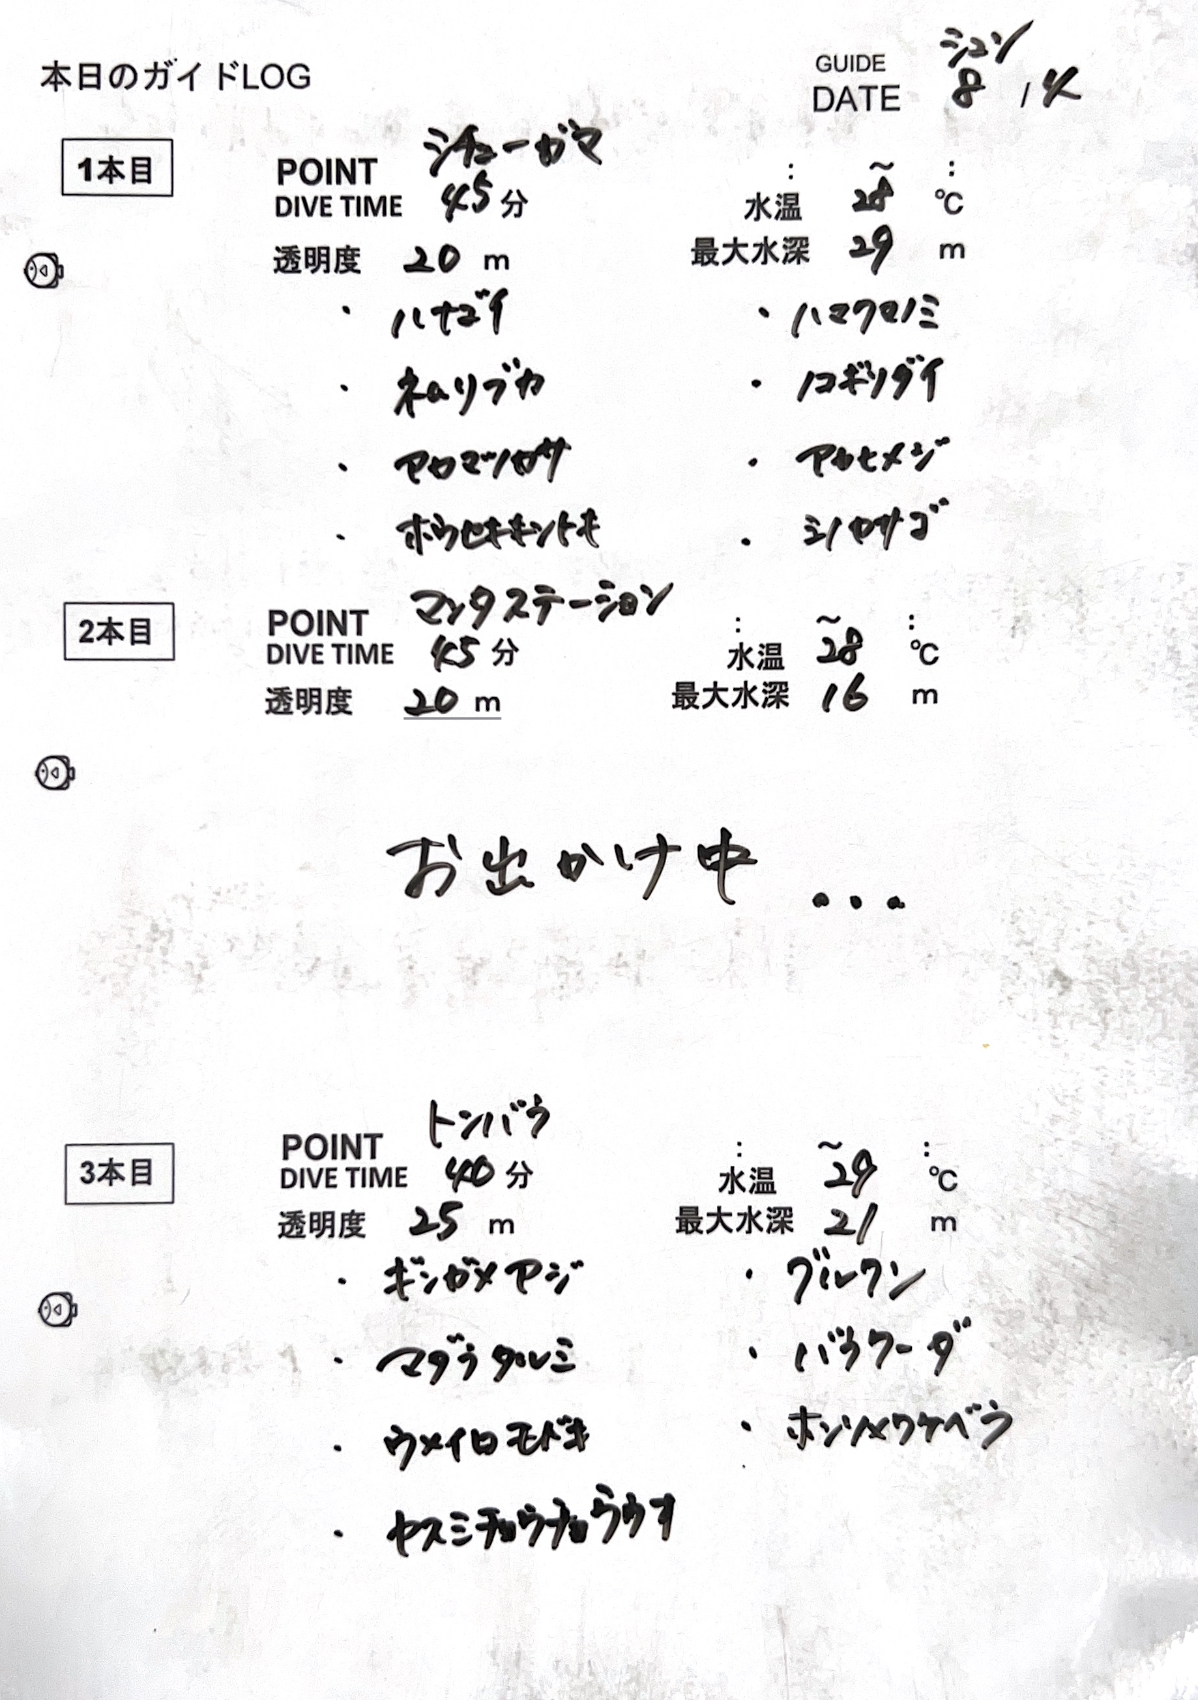 本日のガイドLOG
GUIDE シュン
DATE 8 / 4
1本目
POINT シチューガマ : ~ :
DIVE TIME 45 分 水温 28 ℃
透明度 20 m 最大水深 29 m
・ ハナゴイ ・ ハマクマノミ
・ ネムリブカ ・ ノコギリダイ
・ アカマツカサ ・ アカヒメジ
・ ホウセキキントキ ・ シノカサゴ
2本目
POINT マンタステーション : ~ :
DIVE TIME 45 分 水温 28 ℃
透明度 20 m 最大水深 16 m
お出かけ中 ...
3本目
POINT トンバラ : ~ :
DIVE TIME 40 分 水温 29 ℃
透明度 25 m 最大水深 21 m
・ ギンガメアジ ・ グルクン
・ マダラタルミ ・ バラクーダ
・ ウメイロモドキ ・ ホンソメワケベラ
・ ヤスミチョウチョウウオ